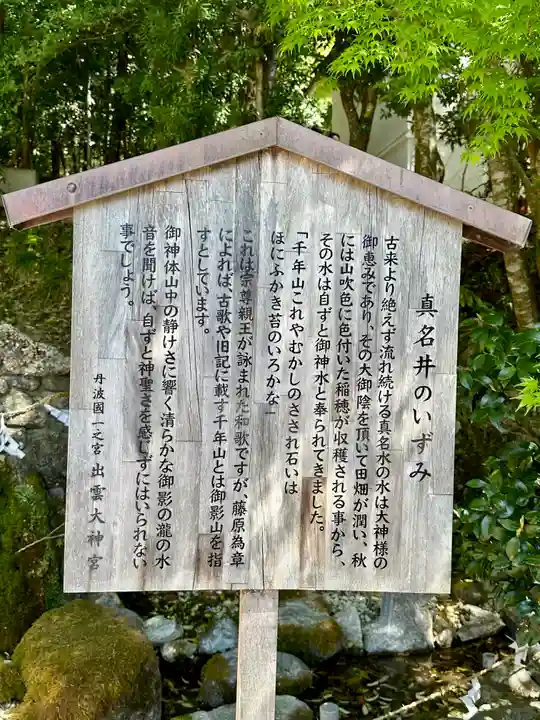 真名井のいずみ
古来より絶えず流れ続ける真名水の水は大神様の
御恵みであり、その大御陰を頂いて田畑が潤い、秋
には山吹色に色付いた稲穂が収穫される事から、
その水は自ずと御神水と奉られてきました。
「千年山これやむかしのさされ石いは
ほにふかき苔のいろかな」
これは宗尊親王が詠まれた和歌ですが、藤原為章
によれば、古歌や旧記に載す千年山とは御影山を指
すとしています。
御神体山中の静けさに響く清らかな御影の瀧の水
音を聞けば、自ずと神聖さを感じずにはいられない
事でしょう。
丹波國一之宮 出雲大神宮